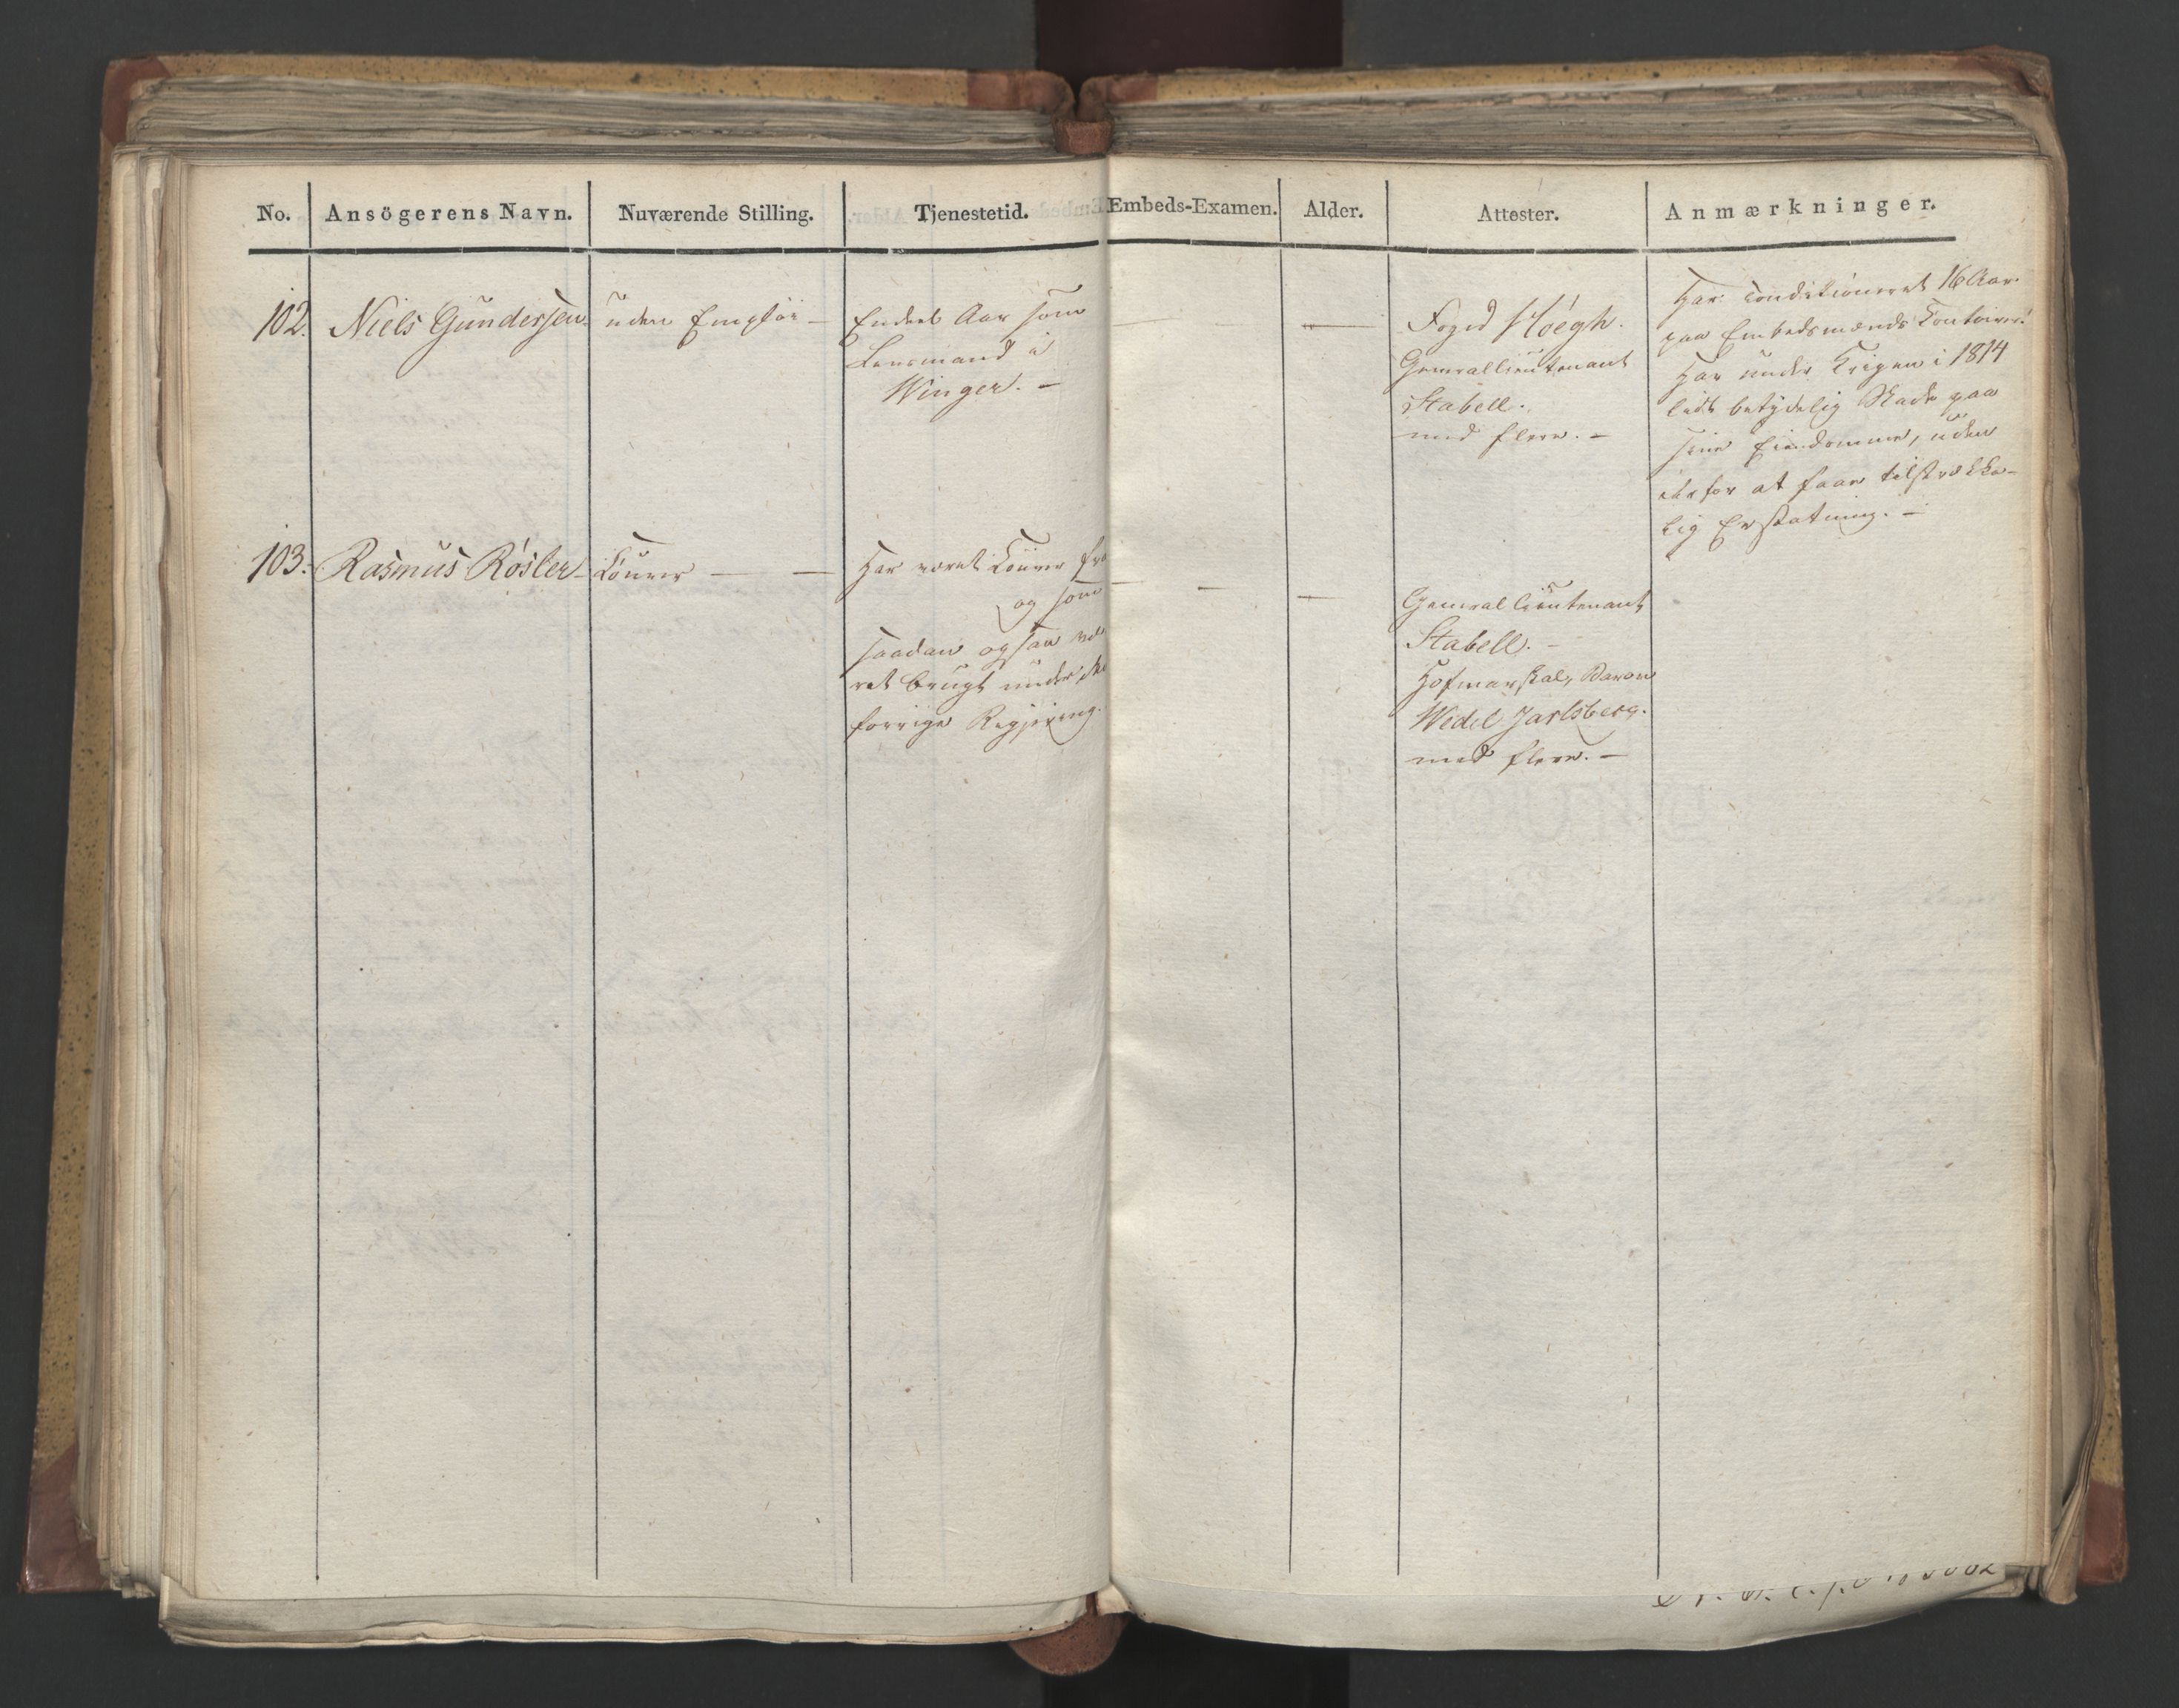 No. Ansögerens Navn. Nuværende Stilling. Tjenestetid. Embeds-Examen. Alder. Attester. Anmærkninger.
102. Niels Gundersen uden Emploi — Endeel Aar som
Lensmand i
Winger. —
— —
Foged Høegh.
Generallieutenant
Stabell.
med flere. —
Har conditioneret 16 Aar
paa Embedsmænds Contoirer.
Har under Krigen i 1814
lidt betydelig Skade paa
sine Eiendomme, uden
derfor at faae tilstrække-
lig Erstatning. —
103. Rasmus Røsler Tømrer — — Har været Tømrer
og som
saadan ogsaa væ
ret brugt under
forrige Regjering.
— — —
Generallieutenant
Stabell. —
Hofmarskal, Baron
Wedel Jarlsberg.
med flere. —